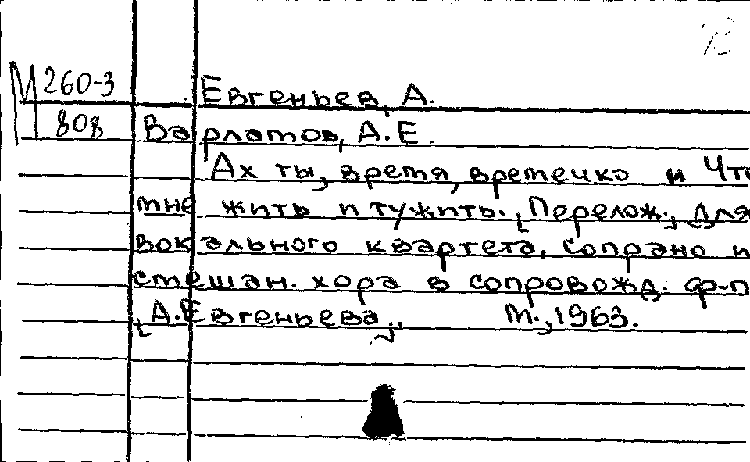 М 260-3
808
Евгеньев, А.
Варламов, А.Е.
Ах ты, время, времечко и Что
мне жить и тужить. [Перелож. для
вокального квартета, сопрано и
смешан. хора в сопровожд. ф-п
А.Евгеньева]. М., 1963.